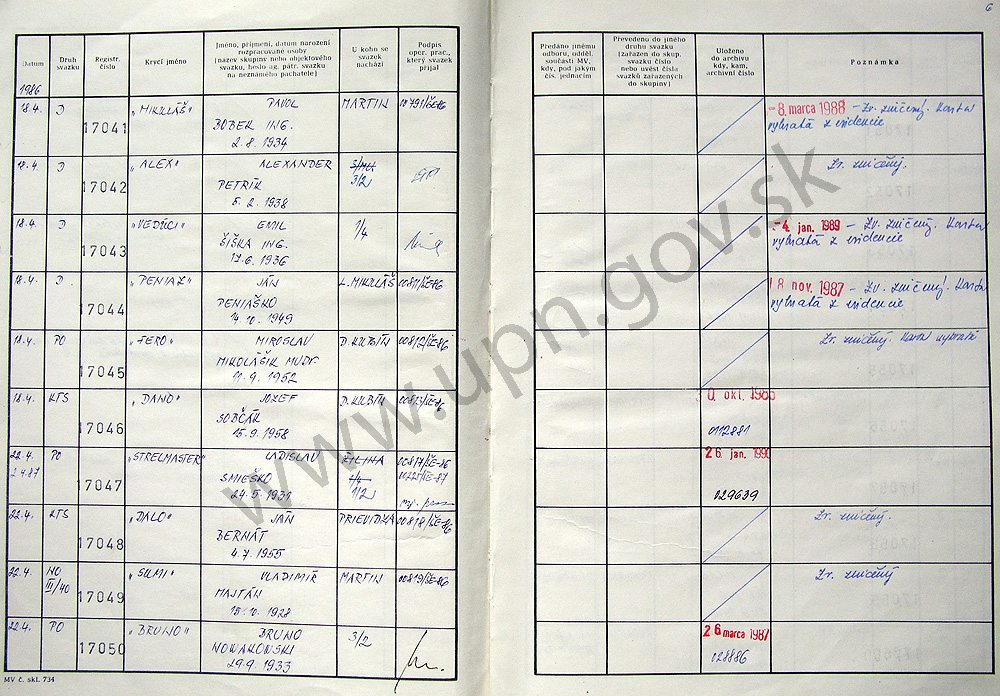 6
Datum
Druh svazku
Registr. číslo
Krycí jméno
Jméno, příjmení, datum narození
rozpracované osoby
(název skupiny nebo objektového
svazku, heslo ag. pátr. svazku
na neznámého pachatele)
U koho se
svazek
nachází
Podpis
oper. prac.,
který svazek
přijal
Předáno jinému
odboru, odděl.
součásti MV,
kdy, pod jakým
čís. jednacím
Převedeno do jiného
druhu svazku
(zařazen do skup.
svazku číslo
nebo uvést čísla
svazků zařazených
do skupiny)
Uloženo
do archivu
kdy, kam,
archivní číslo
Poznámka
1986
18.4. D 17041 „MIKULÁŠ" PAVOL MARTIN
BOBEK ING.
2.8.1934
- 8. marca 1988 - Zv. zničený. Karta
vybratá z evidencie
18.4. D 17042 „ALEX" ALEXANDER
3/2
PETRÍK
5.2.1938
Zv. zničený.
18.4. D 17043 „VEDÚCI" EMIL 1/4
ŠIŠKA ING.
17.6.1936
- 4. jan. 1989 - Zv. zničený. Karta
vybratá z evidencie
18.4. D 17044 „PENIAZ" JÁN L. MIKULÁŠ
PENIAŠKO
14.10.1949
18 nov. 1987 - Zv. zničený. Karta
vybratá z evidencie
18.4. PO 17045 „FERO" MIROSLAV D. KUBÍN 00812/ŠE-86
MIKOLÁŠIK MUDr
11.9.1952
Zv. zničený. Karta vybratá
18.4. KTS 17046 „DANO" JOZEF D. KUBÍN 00813/ŠE-86
SOBČÁK
15.9.1958
okt. 1986
0112881
22.4. PO 17047 „STRELMASTER" LADISLAV ŽILINA 00817/ŠE-86
2.4.87
1/2
SMIEŠKO
24.5.1931
26. jan. 1990
029639
22.4. KTS 17048 „DALO" JÁN PRIEVIDZA 00818/ŠE-86
BERNÁT
4.7.1955
Zv. zničený.
22.4. NO
III/40
17049 „SUMI" VLADIMÍR MARTIN 00819/ŠE-86
MAJTÁN
15.10.1928
Zv. zničený
22.4. PO 17050 „BRUNO" BRUNO 3/2
NOWAKONSKI
29.9.1933
26 marca 1987
028886
MV č. skl. 734
www.upn.gov.sk